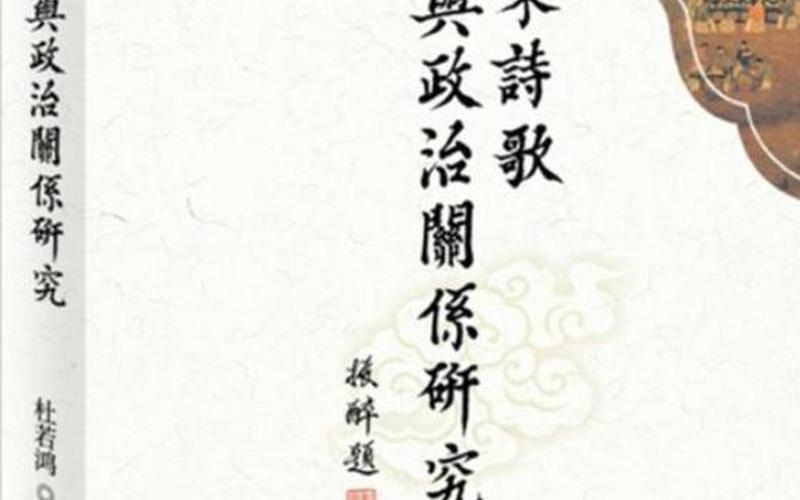 詩歌
與政治關係研究
題
與政治關係研究
杜若鴻